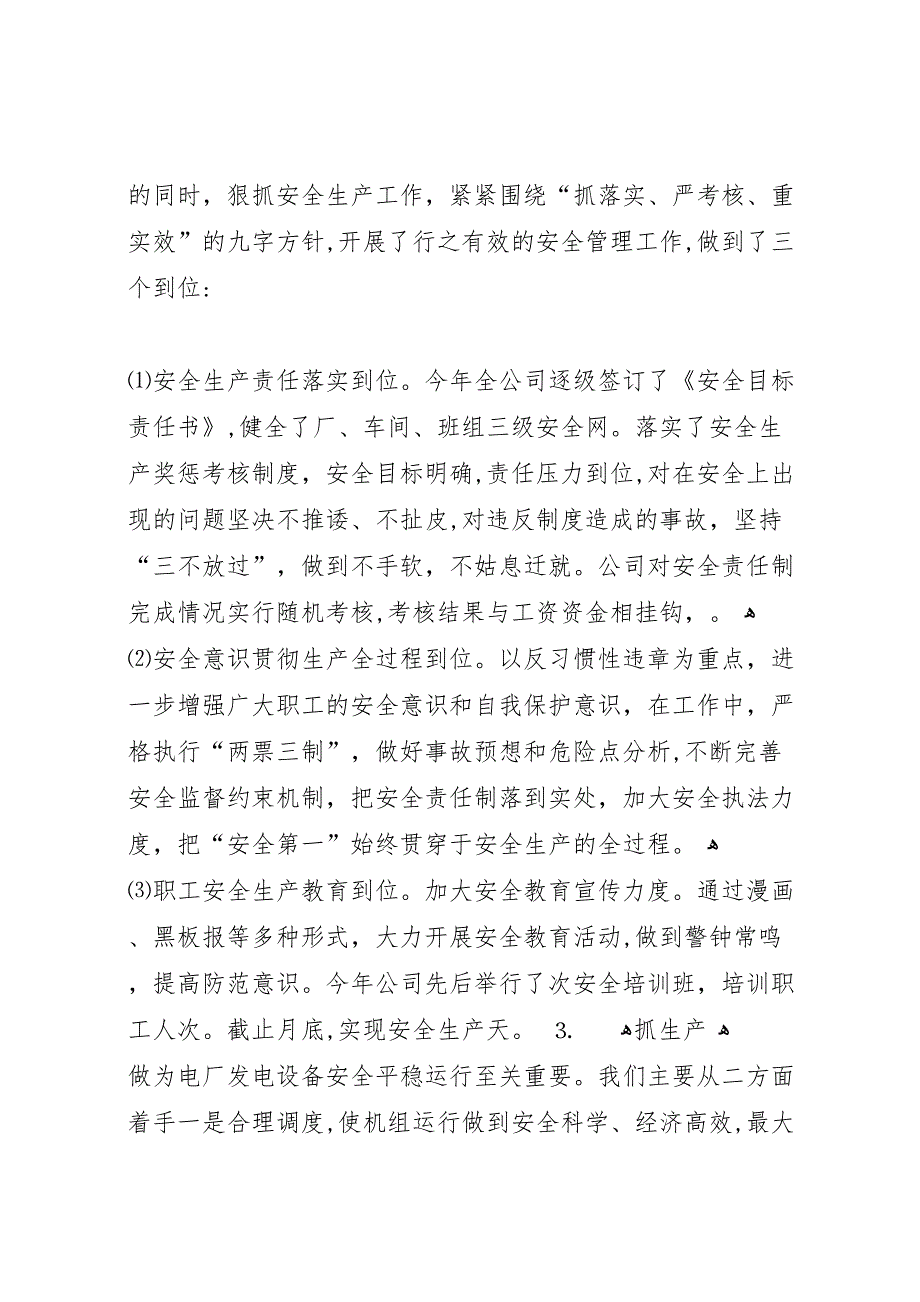 的同时，狠抓安全生产工作，紧紧围绕“抓落实、严考核、重
实效”的九字方针,开展了行之有效的安全管理工作,做到了三
个到位:
⑴安全生产责任落实到位。今年全公司逐级签订了《安全目标
责任书》,健全了厂、车间、班组三级安全网。落实了安全生
产奖惩考核制度，安全目标明确,责任压力到位,对在安全上出
现的问题坚决不推诿、不扯皮,对违反制度造成的事故，坚持
“三不放过”，做到不手软，不姑息迁就。公司对安全责任制
完成情况实行随机考核,考核结果与工资资金相挂钩，。 ﻫ
⑵安全意识贯彻生产全过程到位。以反习惯性违章为重点，进
一步增强广大职工的安全意识和自我保护意识，在工作中，严
格执行“两票三制”，做好事故预想和危险点分析,不断完善
安全监督约束机制，把安全责任制落到实处，加大安全执法力
度，把“安全第一”始终贯穿于安全生产的全过程。 ﻫ
⑶职工安全生产教育到位。加大安全教育宣传力度。通过漫画
、黑板报等多种形式，大力开展安全教育活动,做到警钟常鸣
，提高防范意识。今年公司先后举行了次安全培训班，培训职
工人次。截止月底,实现安全生产天。 3. ﻫ抓生产 ﻫ
做为电厂发电设备安全平稳运行至关重要。我们主要从二方面
着手一是合理调度,使机组运行做到安全科学、经济高效,最大